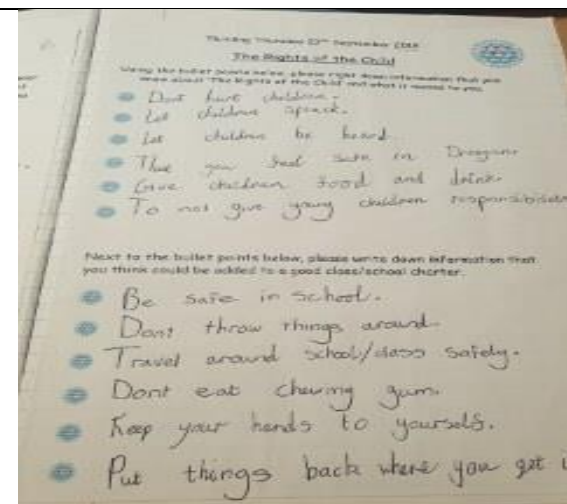 The Rights of the Child
Using the bullet points below, please right down information that you
know about 'The Rights of the Child' and what it means to you.
Dont hurt children.
Let children speack.
Let children be heard
That you feel safe in
Give children food and drink.
To not give young children
Next to the bullet points below, please write down information that
you think could be added to a good class/school charter.
Be safe in school.
Dont throw things around.
Travel around school/class safely.
Dont eat chewing gum.
Keep your hands to yourself.
Put things back where you get